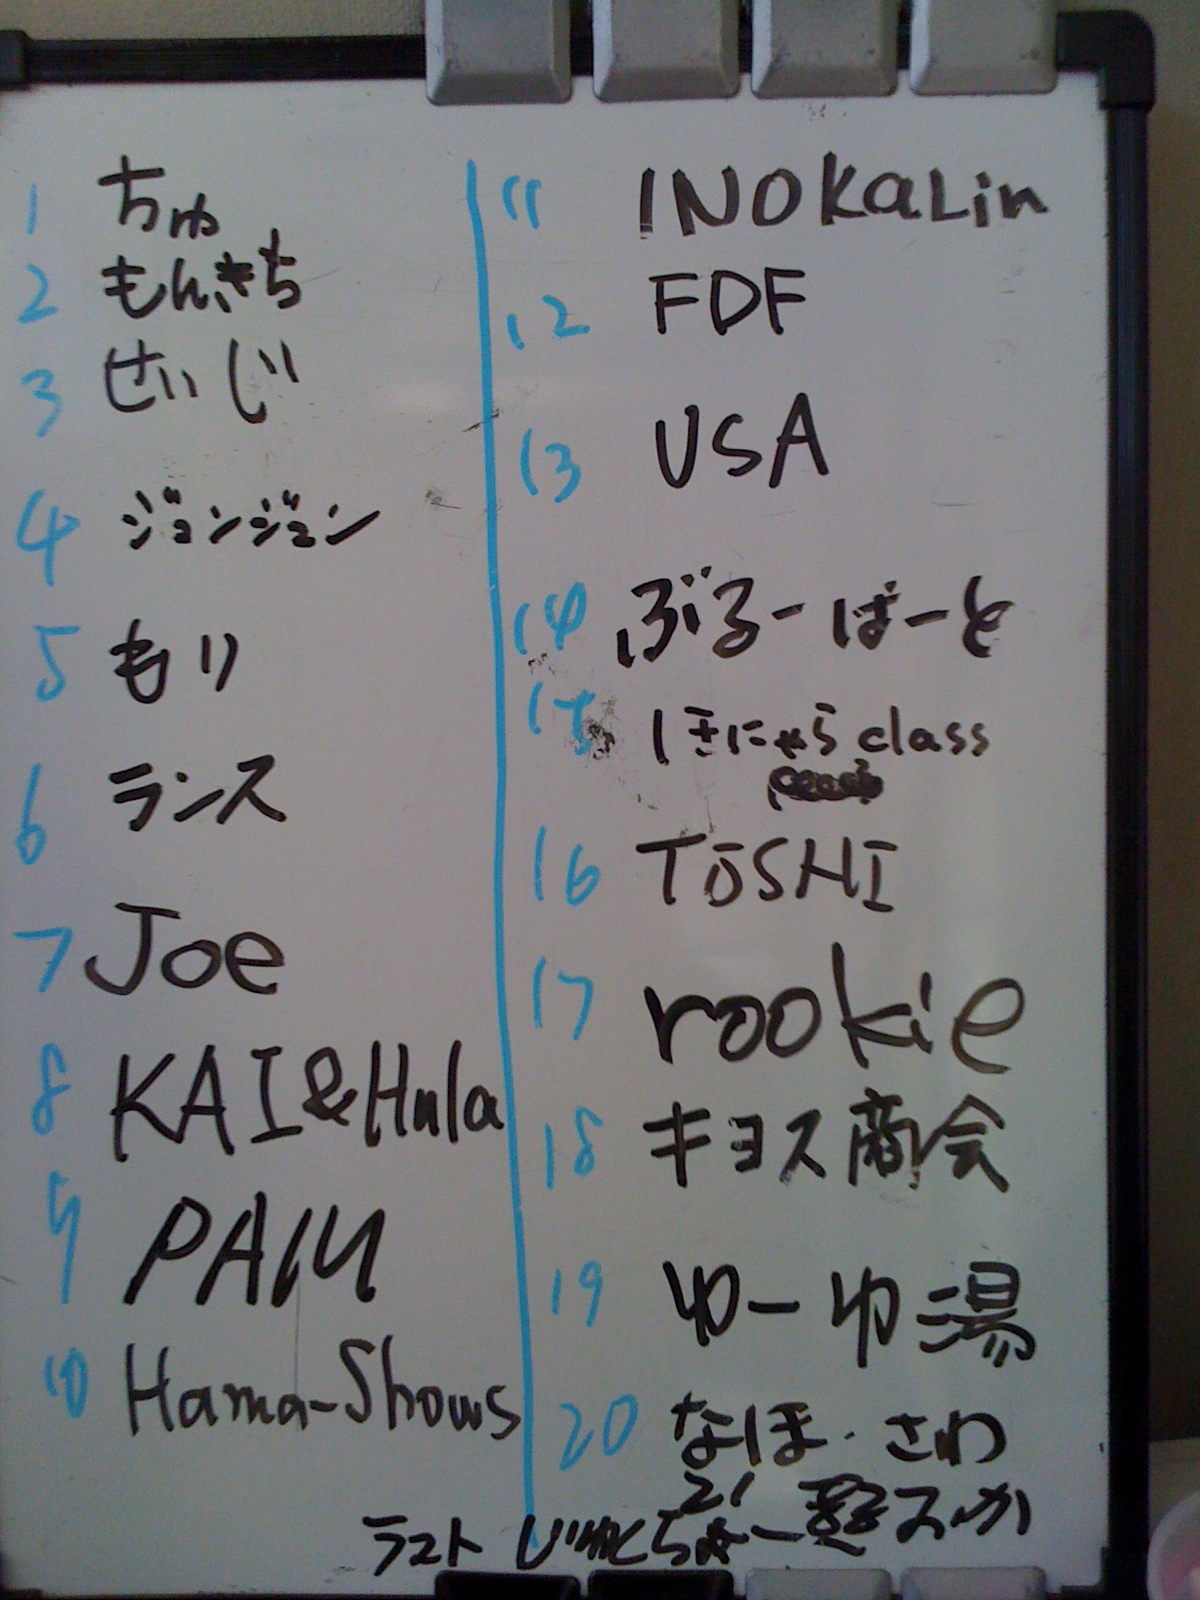 1 ちゅ
2 もんきち
3 せいじ
4 ジョンジョン
5 もり
6 ランス
7 Joe
8 KAI&Hula
9 PAIU
10 Hama-Shows
11 INOKaLin
12 FDF
13 USA
14 ぶるーばーど
15 class
16 TOSHI
17 rookie
18 キヨス商会
19 ゆーゆ湯
20 なほ・さわ
21
ラスト